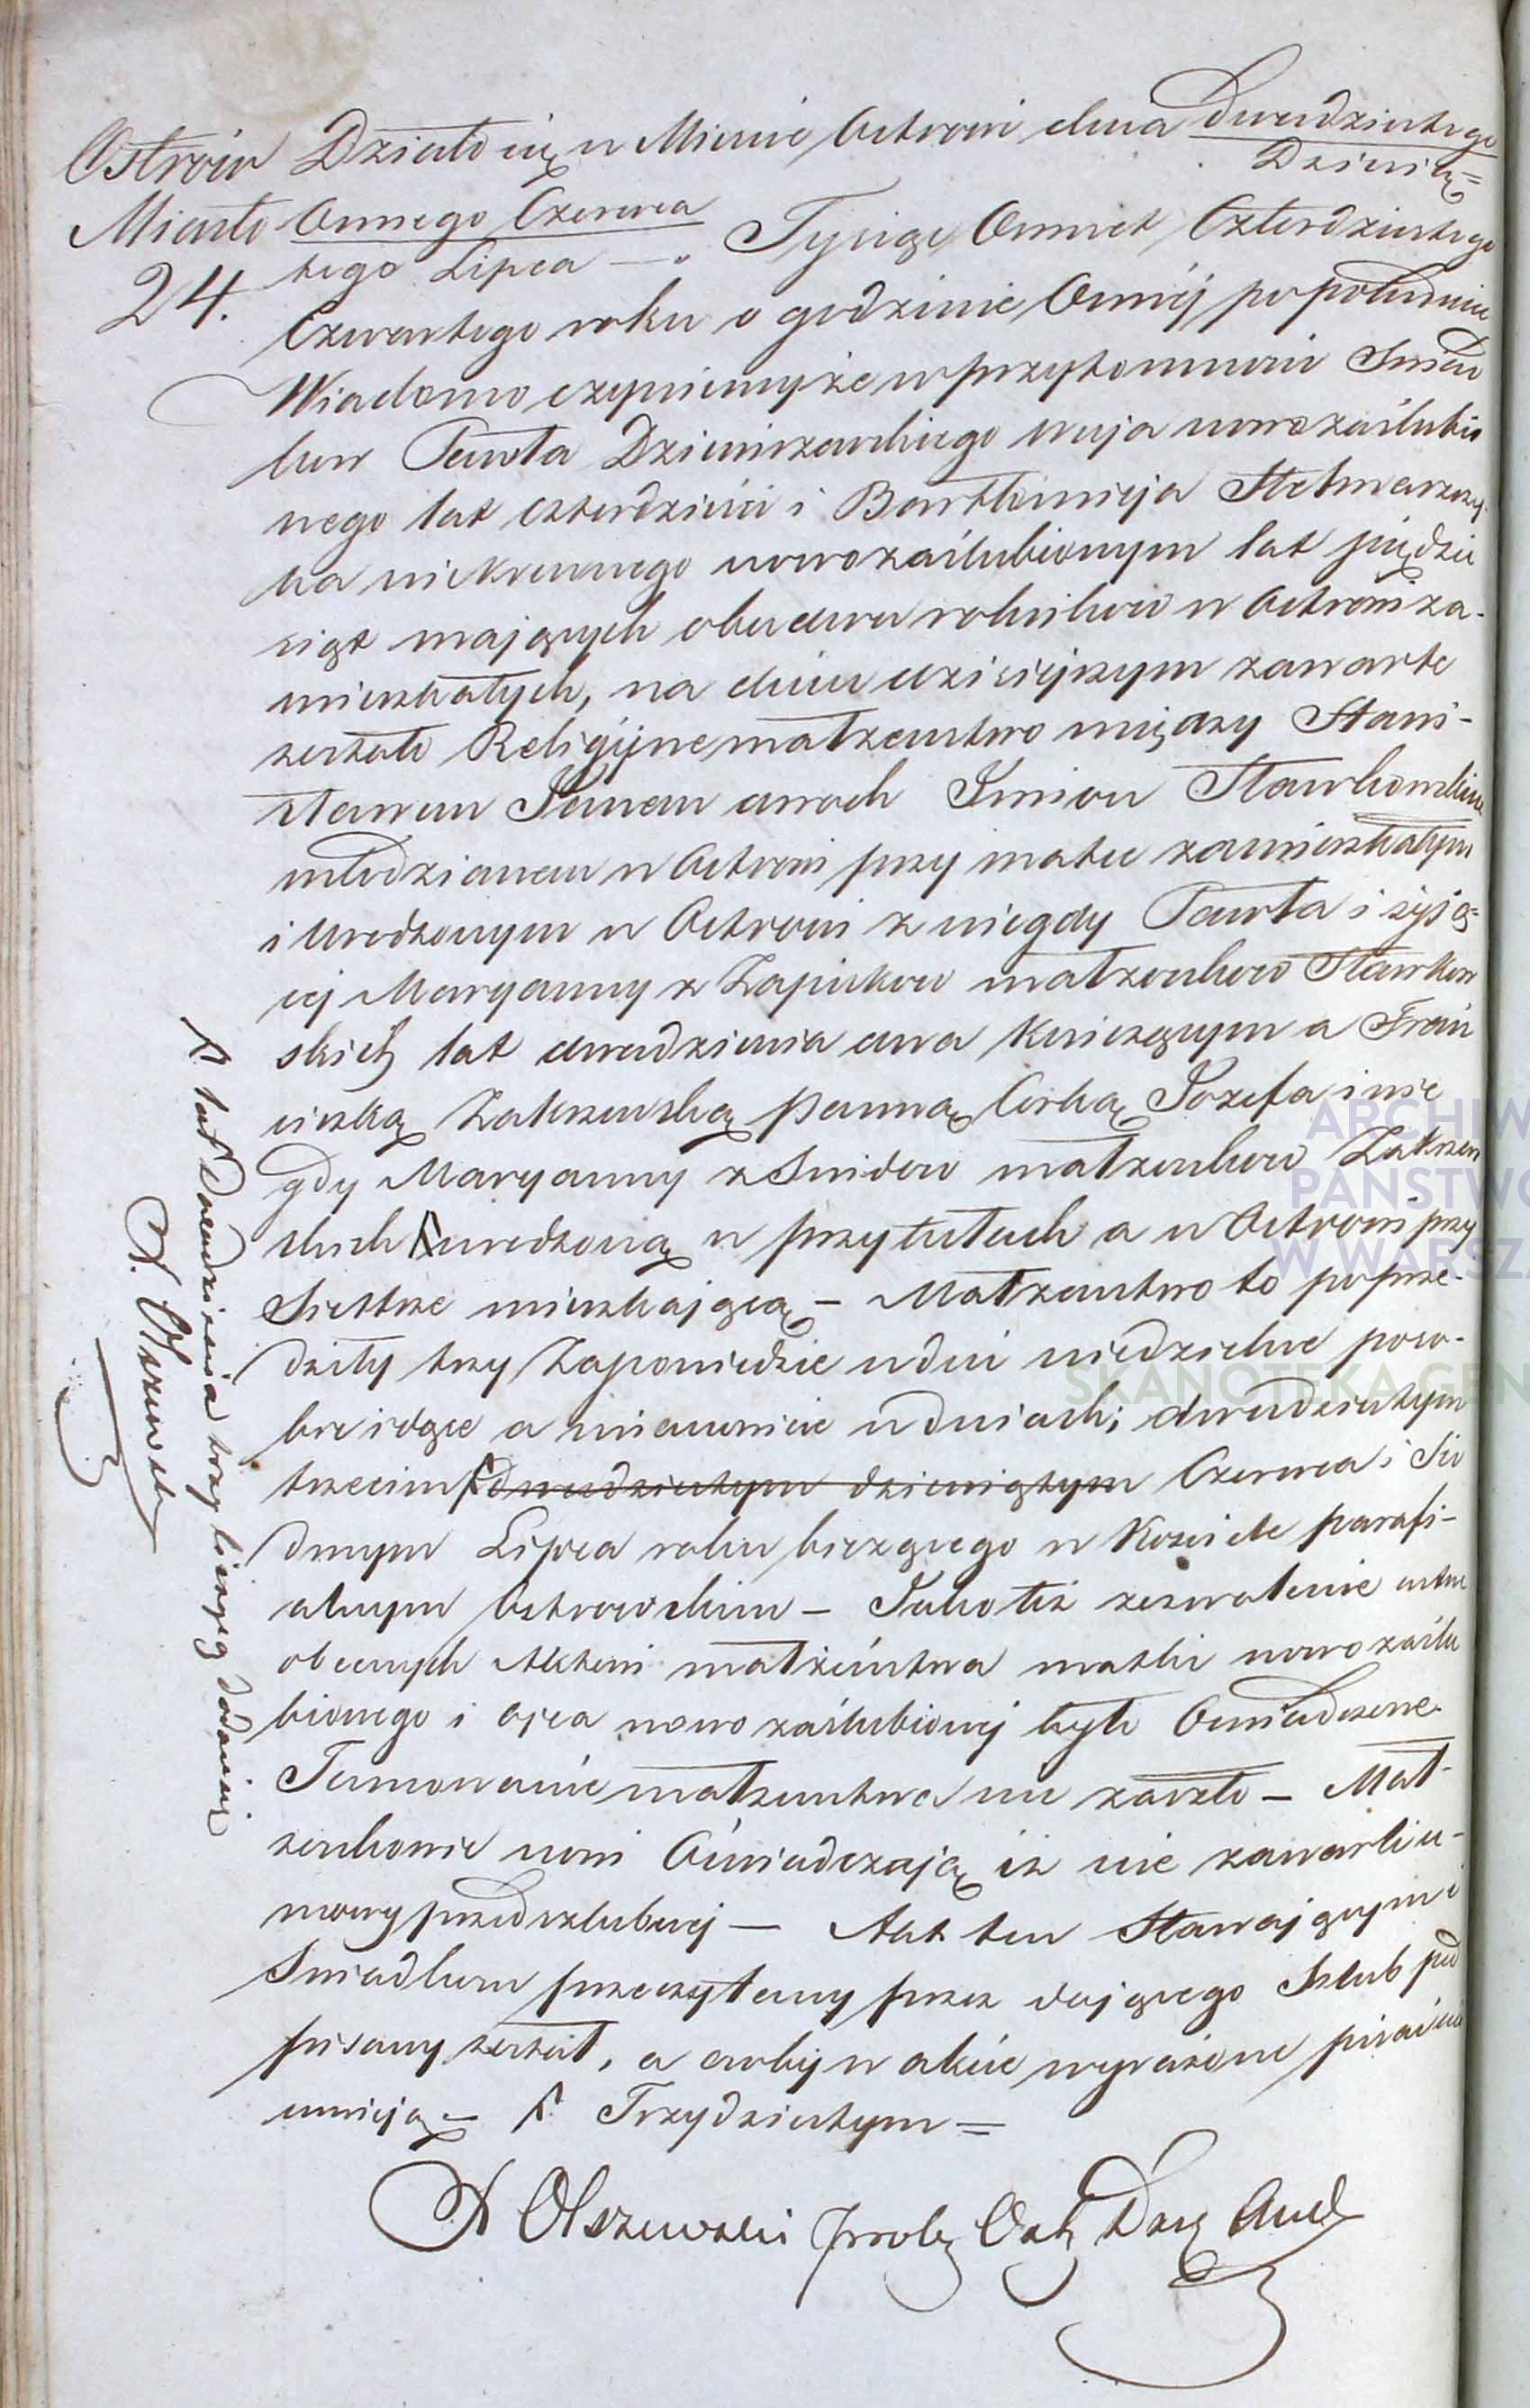 Ostrów Miasto
24.
Działo się w Mieście Ostrowi dnia Dwudziestego
Dziewię=
Osmego Czerwca
tego Lipca — „ Tysiąc Ośmset Czterdziestego
Czwartego roku o godzinie Osmej po południu
Wiadomo czynimy że w przytomności Świad
ków Pawła Dzieniszewskiego wuja nowozaślubio
nego lat czterdzieści i Bartłomieja Stelmaszczy
ka niekrewnego nowozaślubionym lat pięćdzie
siąt mających obudwu rolników w Ostrowi za-
mieszkałych, na dniu dzisiejszym zawarte
zostało Religijne małżeństwo między Stani-
sławem Janem dwóch Imion Sławkowskim
młodzianem w Ostrowi przy matce zamieszkałym
i urodzonym w Ostrowi z niegdy Pawła i żyją=
cej Maryanny z Zapisków małżonków Sławkow
skich lat dwadzieścia dwa kończącym a Fran
ciszką Zakrzewską panną Córką Jozefa i nie
gdy Maryanny z małżonków Zakrzew
skich urodzoną w przytułach a w Ostrowi przy
Siostrze mieszkającą – Małżeństwo to poprze-
dziły trzy Zapowiedzie w dni niedzielne poso-
bie idące a mianowicie w dniach; dwudziestym
trzecim dwudziestym dziewiątym Czerwca i Sió
dmym Lipca roku bieżącego w Kościele parafi-
alnym Ostrowskim – Jako też zezwolenie ustne
obecnych Aktowi małżeństwa matki nowo zaślu
bionego i ojca nowo zaślubionej było Oswiadczone.
Tamowanie małżeństwa nie zaszło – Mał-
żonkowie nowi Oświadczają iż nie zawarli u-
mowy przedszlubnej — Akt ten Stawającym i
Świadkom przeczytany przez dającego Szlub pod
pisany został, a osoby w akcie wyrażone pisać nie
umieją – Trzydziestym =
A Olszewski Prob Ostr Dzie
lat Dwadzieścia trzy liczącą dodanie
A. Olszewski
ARCHIW
PAŃSTWO
W WARSZA
SKANOTEKA GEN